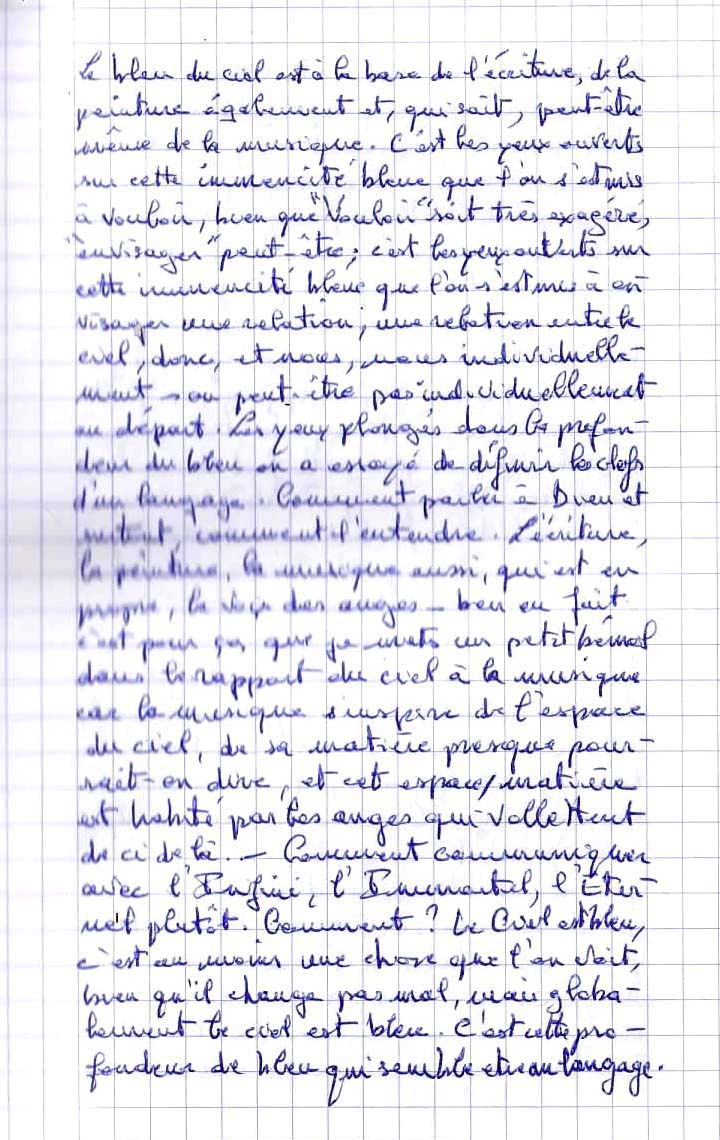 Le bleu du ciel est à la base de l'écriture, de la
peinture également et, qui sait, peut-être
même de la musique. C'est les yeux ouverts
sur cette immencité bleue que l'on s'est mis
à vouloir, bien que "vouloir" soit très exagéré,
"envisager" peut-être ; c'est les yeux ouverts sur
cette immencité bleue que l'on s'est mis à en
visager une relation ; une relation entre le
ciel, donc, et nous, nous individuelle-
ment - ou peut-être pas individuellement
au départ. Les yeux plongés dans la profon-
deur du bleu on a essayé de définir les clefs
d'un langage. Comment parler à Dieu et
surtout, comment l'entendre. L'écriture,
la peinture, la musique aussi, qui est en
propre, la voix des anges - bien en fait
c'est pour ça que je mets un petit bémol
dans le rapport du ciel à la musique
car la musique s'inspire de l'espace
du ciel, de sa matière presque pour-
rait-on dire, et cet espace/matière
est habité par les anges qui vollettent
de ci de là. - Comment communiquer
avec l'Infini, l'Immortel, l'Eter-
nel plutôt. Comment ? Le Ciel est bleu,
c'est au moins une chose que l'on voit,
bien qu'il change pas mal, mais globa-
lement le ciel est bleu. C'est cette pro-
fondeur de bleu qui semble être un langage.